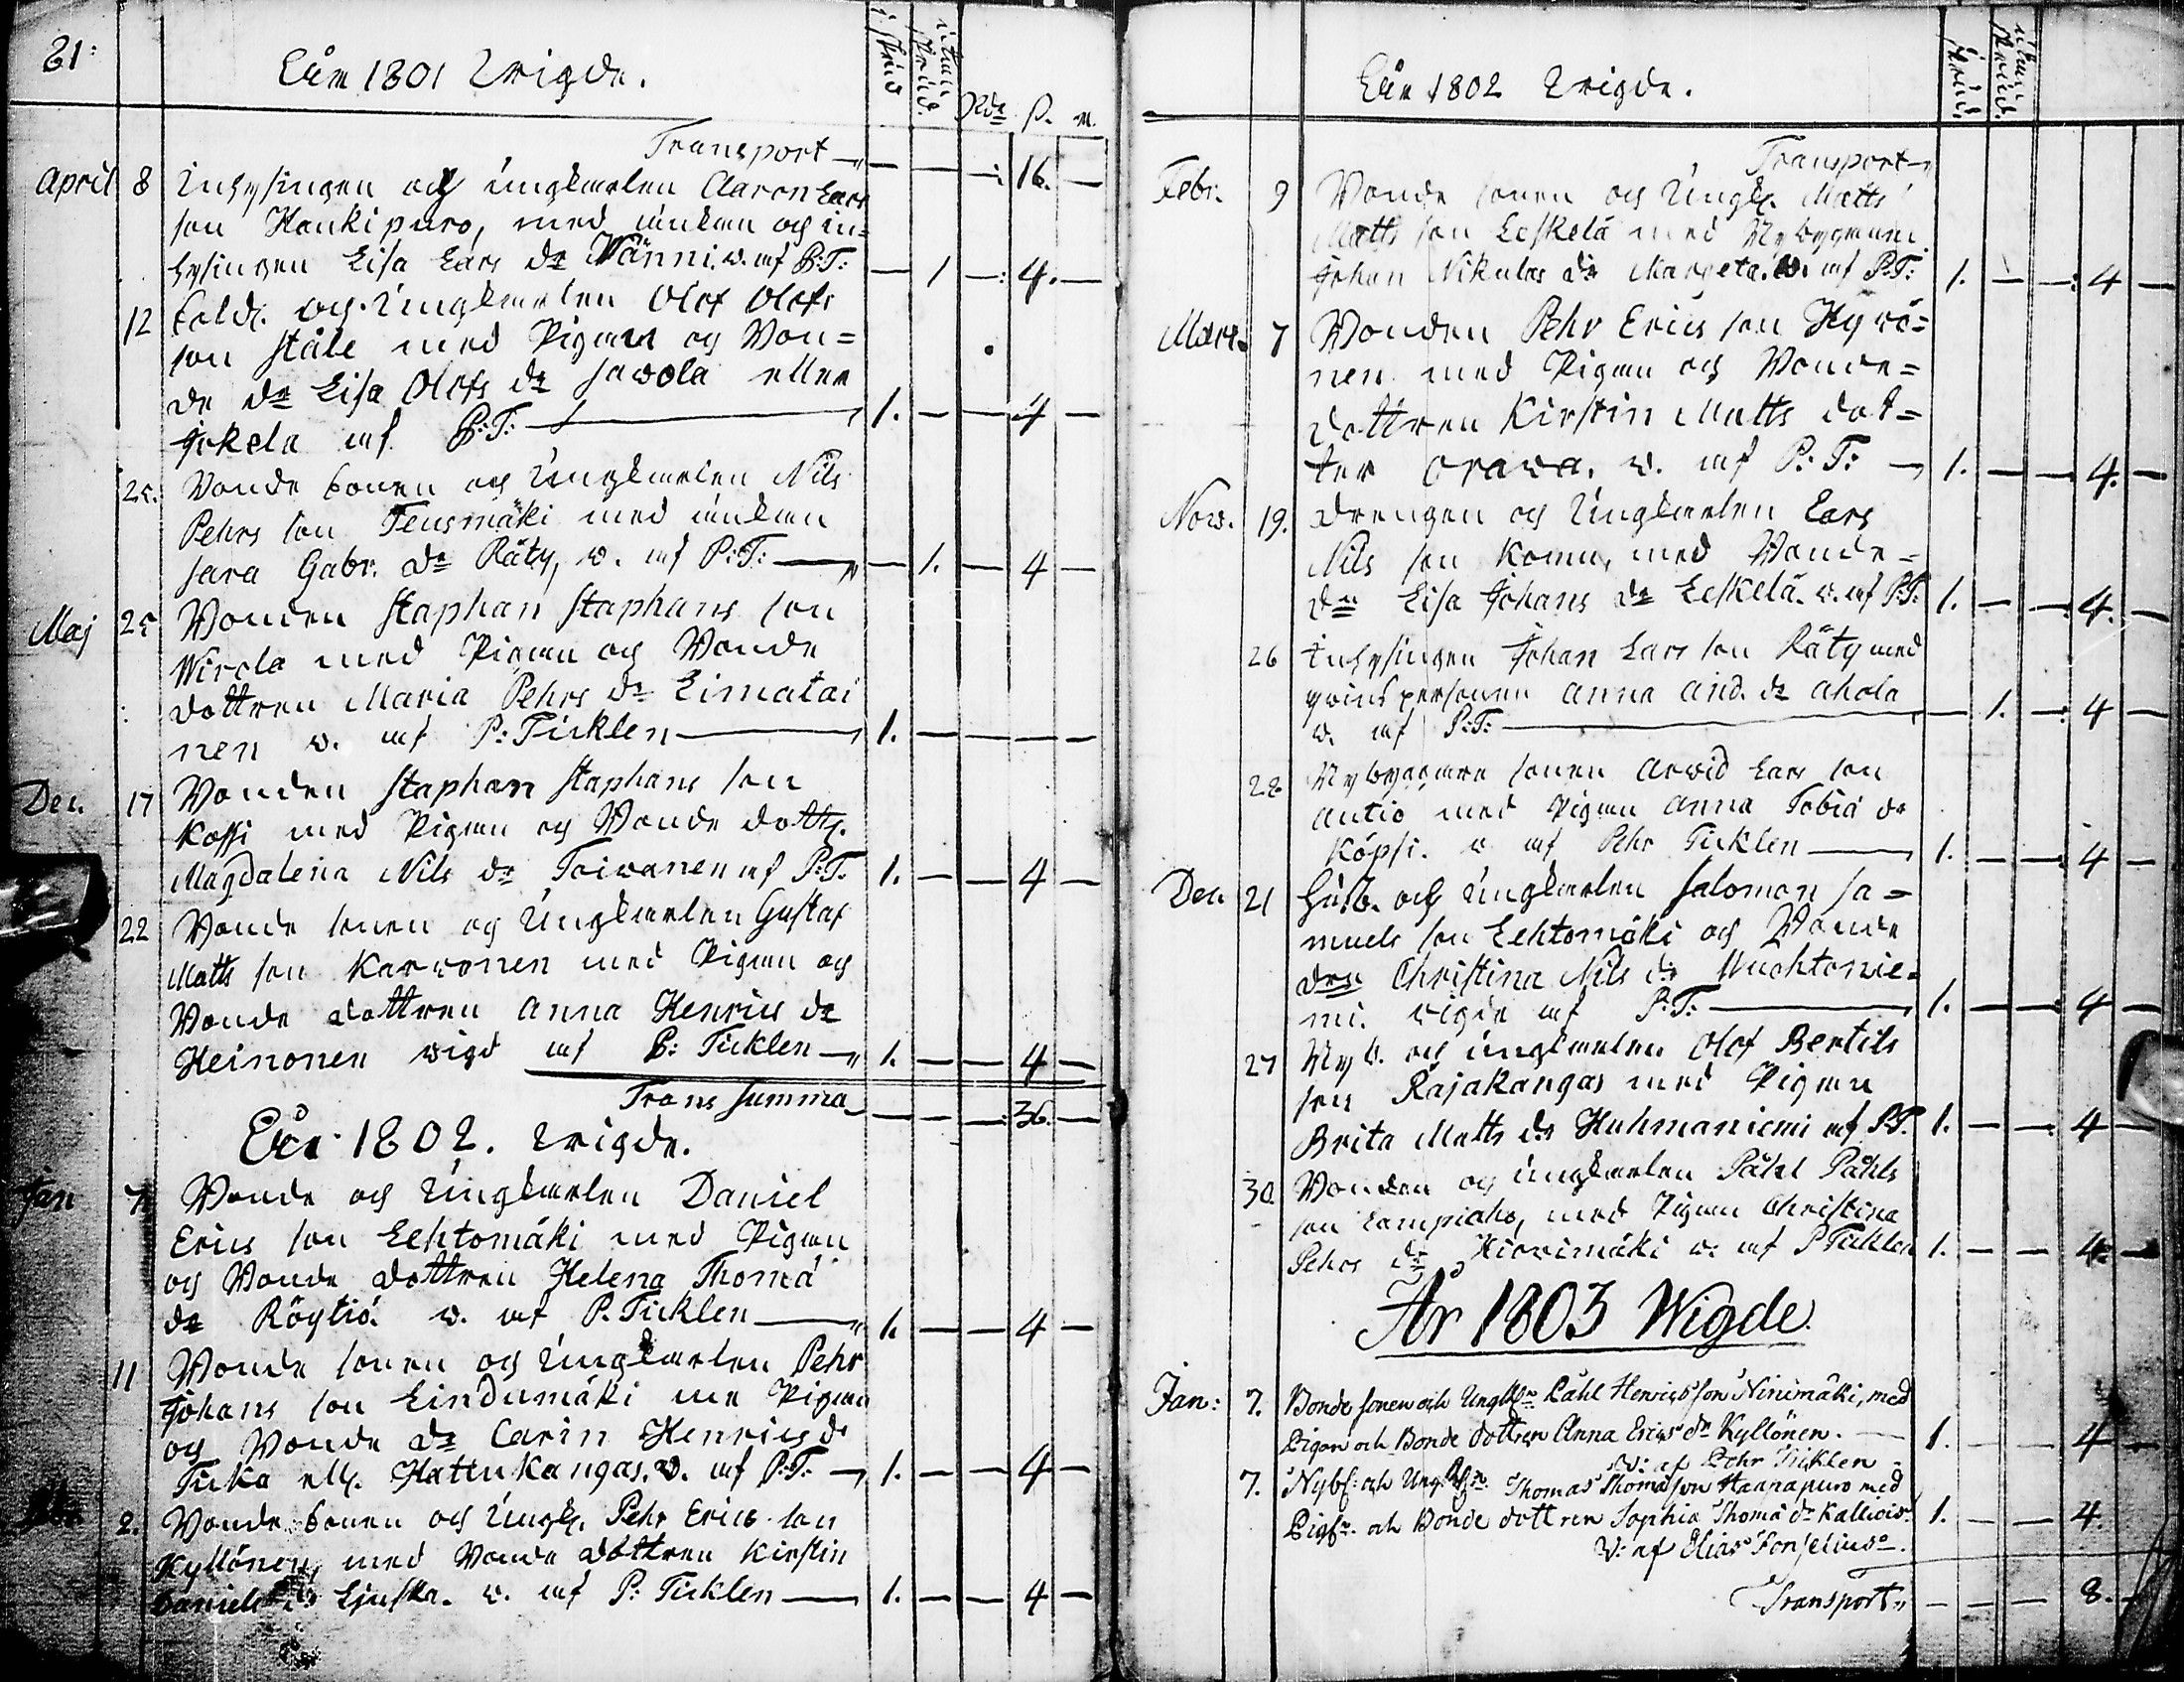 81:
Åhr 1801 Wigde.
i skrud
utan skrud.
Rdr
s.
r.
Transport — — — 16. —
April 8 Inhysingen och ungkarlen Aaron Lars
son Haukipuro, med änkan och in=
hysingen Lisa Lars dr Wänni. w. af P:T: — 1 — 4. —
12 Sold. och Ungkarlen Olof Olofs
son Ståle med Pigan och Bon=
de dr Lisa Olofs dr Sawola eller
Jokela af P:T: 1. — — 4 —
25. Bonde Sonen och Ungkarlen Nils
Pehrs son Teusmäki med änkan
Sara Gabr. dr Räty, w. af P:T: — 1. — 4 —
Maj 25 Bonden Staphan Staphans son
Wirola med Pigan och Bonde
dottren Maria Pehrs dr Limatai
nen w. af P: Ticklen 1. — — — —
Dec. 17 Bonden Staphan Staphans son
Kossi med Pigan och Bonde dottr.
Magdalena Nils dr Toiwanen af P:T. 1. — — 4 —
22 Bonde sonen och Ungkarlen Gustaf
Matts son Karwonen med Pigan och
Bonde dottren Anna Henrics dr
Heinonen wigd af P: Ticklen 1. — — 4 —
Trans Summa — — — 36. —
Åhr 1802. Wigde.
Jan 7 Bonde och Ungkarlen Daniel
Erics son Lehtomäki med Pigan
och Bonde dottren Helena Thomä
dr Röytiö. w. af P. Ticklen 1. — — 4 —
11 Bonde sonen och Ungkarlen Pehr
Johans son Lindumäki me Pigan
och Bonde dr Carin Henrics dr
Tuka ell. Hattukangas. w. af P:T. 1. — — 4 —
2. Bonde Sonen och Ungk. Pehr Erics son
Kyllönen, med Bonde dottren Kirstin
Daniels dr Ljuska. w. af P: Ticklen 1. — — 4 —
Åhr 1802 Wigde.
i skrud.
utan skrud.
Transport
Febr. 9 Bonde sonen och Ungk. Matts
Matts son Leskelä med Nybyggaren
Johan Nikulas dr Margeta. w. af P:T: 1. — — 4 —
Mart. 7 Bonden Pehr Erics son Hyrö=
nen med Pigan och Bonde=
dottren Kirstin Matts dot=
ter Orawa. w. af P:T: 1. — — 4. —
Now. 19. Drengen och Ungkarlen Lars
Nils son Komu, med Bonde=
dr Lisa Johans dr Leskelä. w. af P:T: 1. — — 4. —
26 Inhysingen Johan Lars son Räty med
qwinspersonen Anna And. dr Ahola
w. af P:T: — 1. — 4 —
28 Nybyggare sonen Arwid Lars son
Autio med Pigan Anna Tobiä dr
Köpsi. w af Pehr Ticklen 1. — — 4 —
Dec. 21 Husb. och Ungkarlen Salomon Sa=
muels son Lehtomäki och Bonde
dren Christina Nils dr Muchtonie=
mi. wigde af P:T: 1. — — 4 —
27 Nyb. och ungkarlen Olof Bertils
son Rajakangas med Pigan
Brita Matts dr Huhmaniemi af P:T. 1. — — 4 —
30 Bonden och ungkarlen Påhl Påhls
son Lampiaho, med Pigan Christina
Pehrs dr Hiovimäki w. af P Ticklen 1. — — 4 —
År 1803 Wigde.
Jan: 7. Bonde sonen och Ungkln Påhl Henrics son Ninimäki, med
Pigan och Bonde dottren Anna Erics dr Kyllönen. 1. — — 4 —
W: af Pehr Ticklen
7. Nybs: och Ungkln Thomas Thomä son Haarapuro med
Pigsn. och Bonde dottren Sophia Thomä dr Kallioin. 1. — — 4.
W: af Elias Fonselius.
Transport — — — 8. —